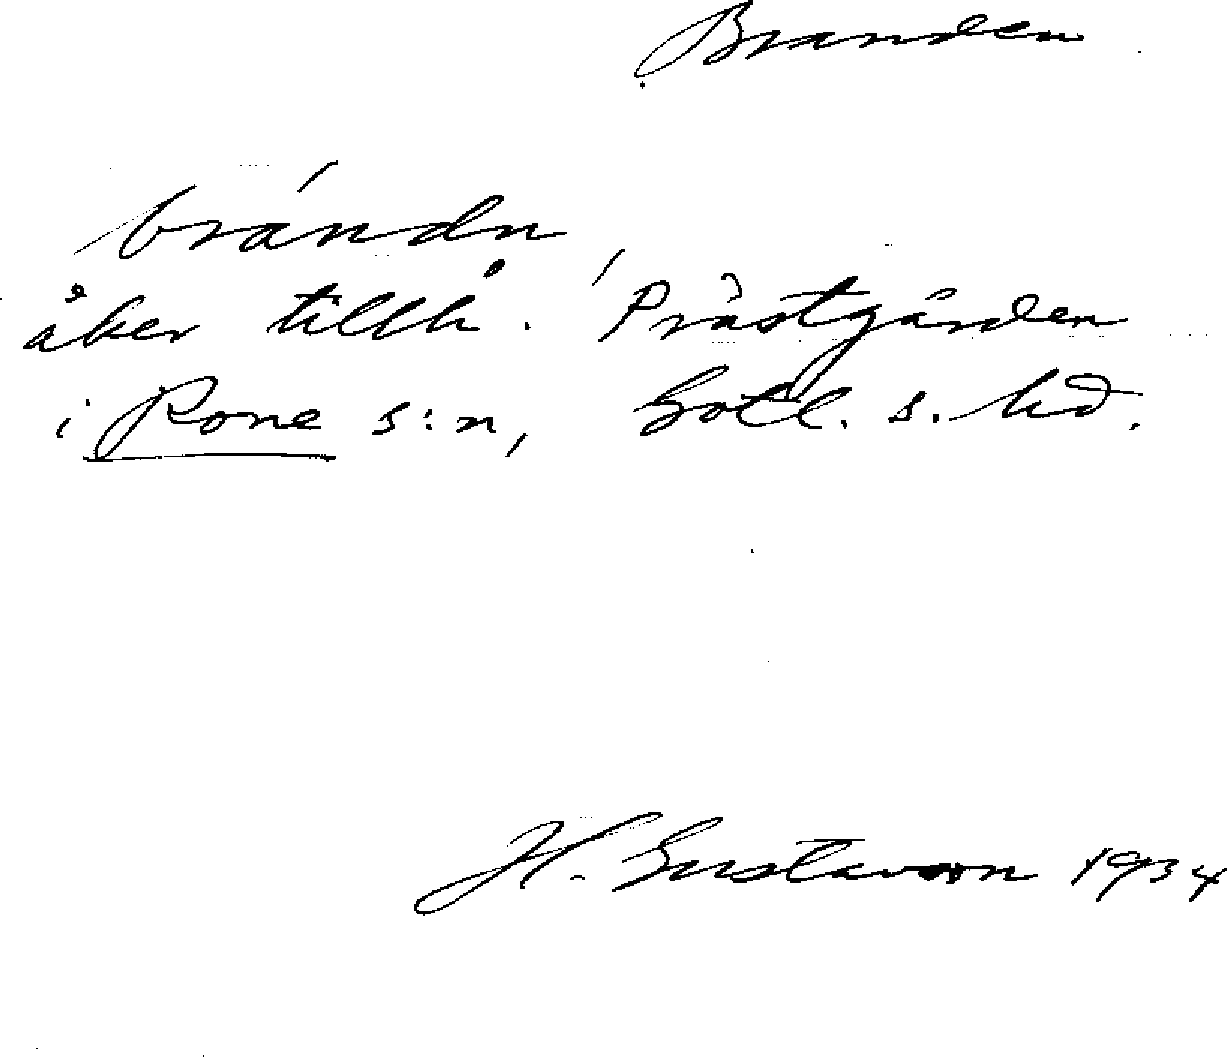 Branden
brándn,
åker tillh. Prästgården
i Rone s:n, Gotl. s. hd.
H. Gustavson 1934